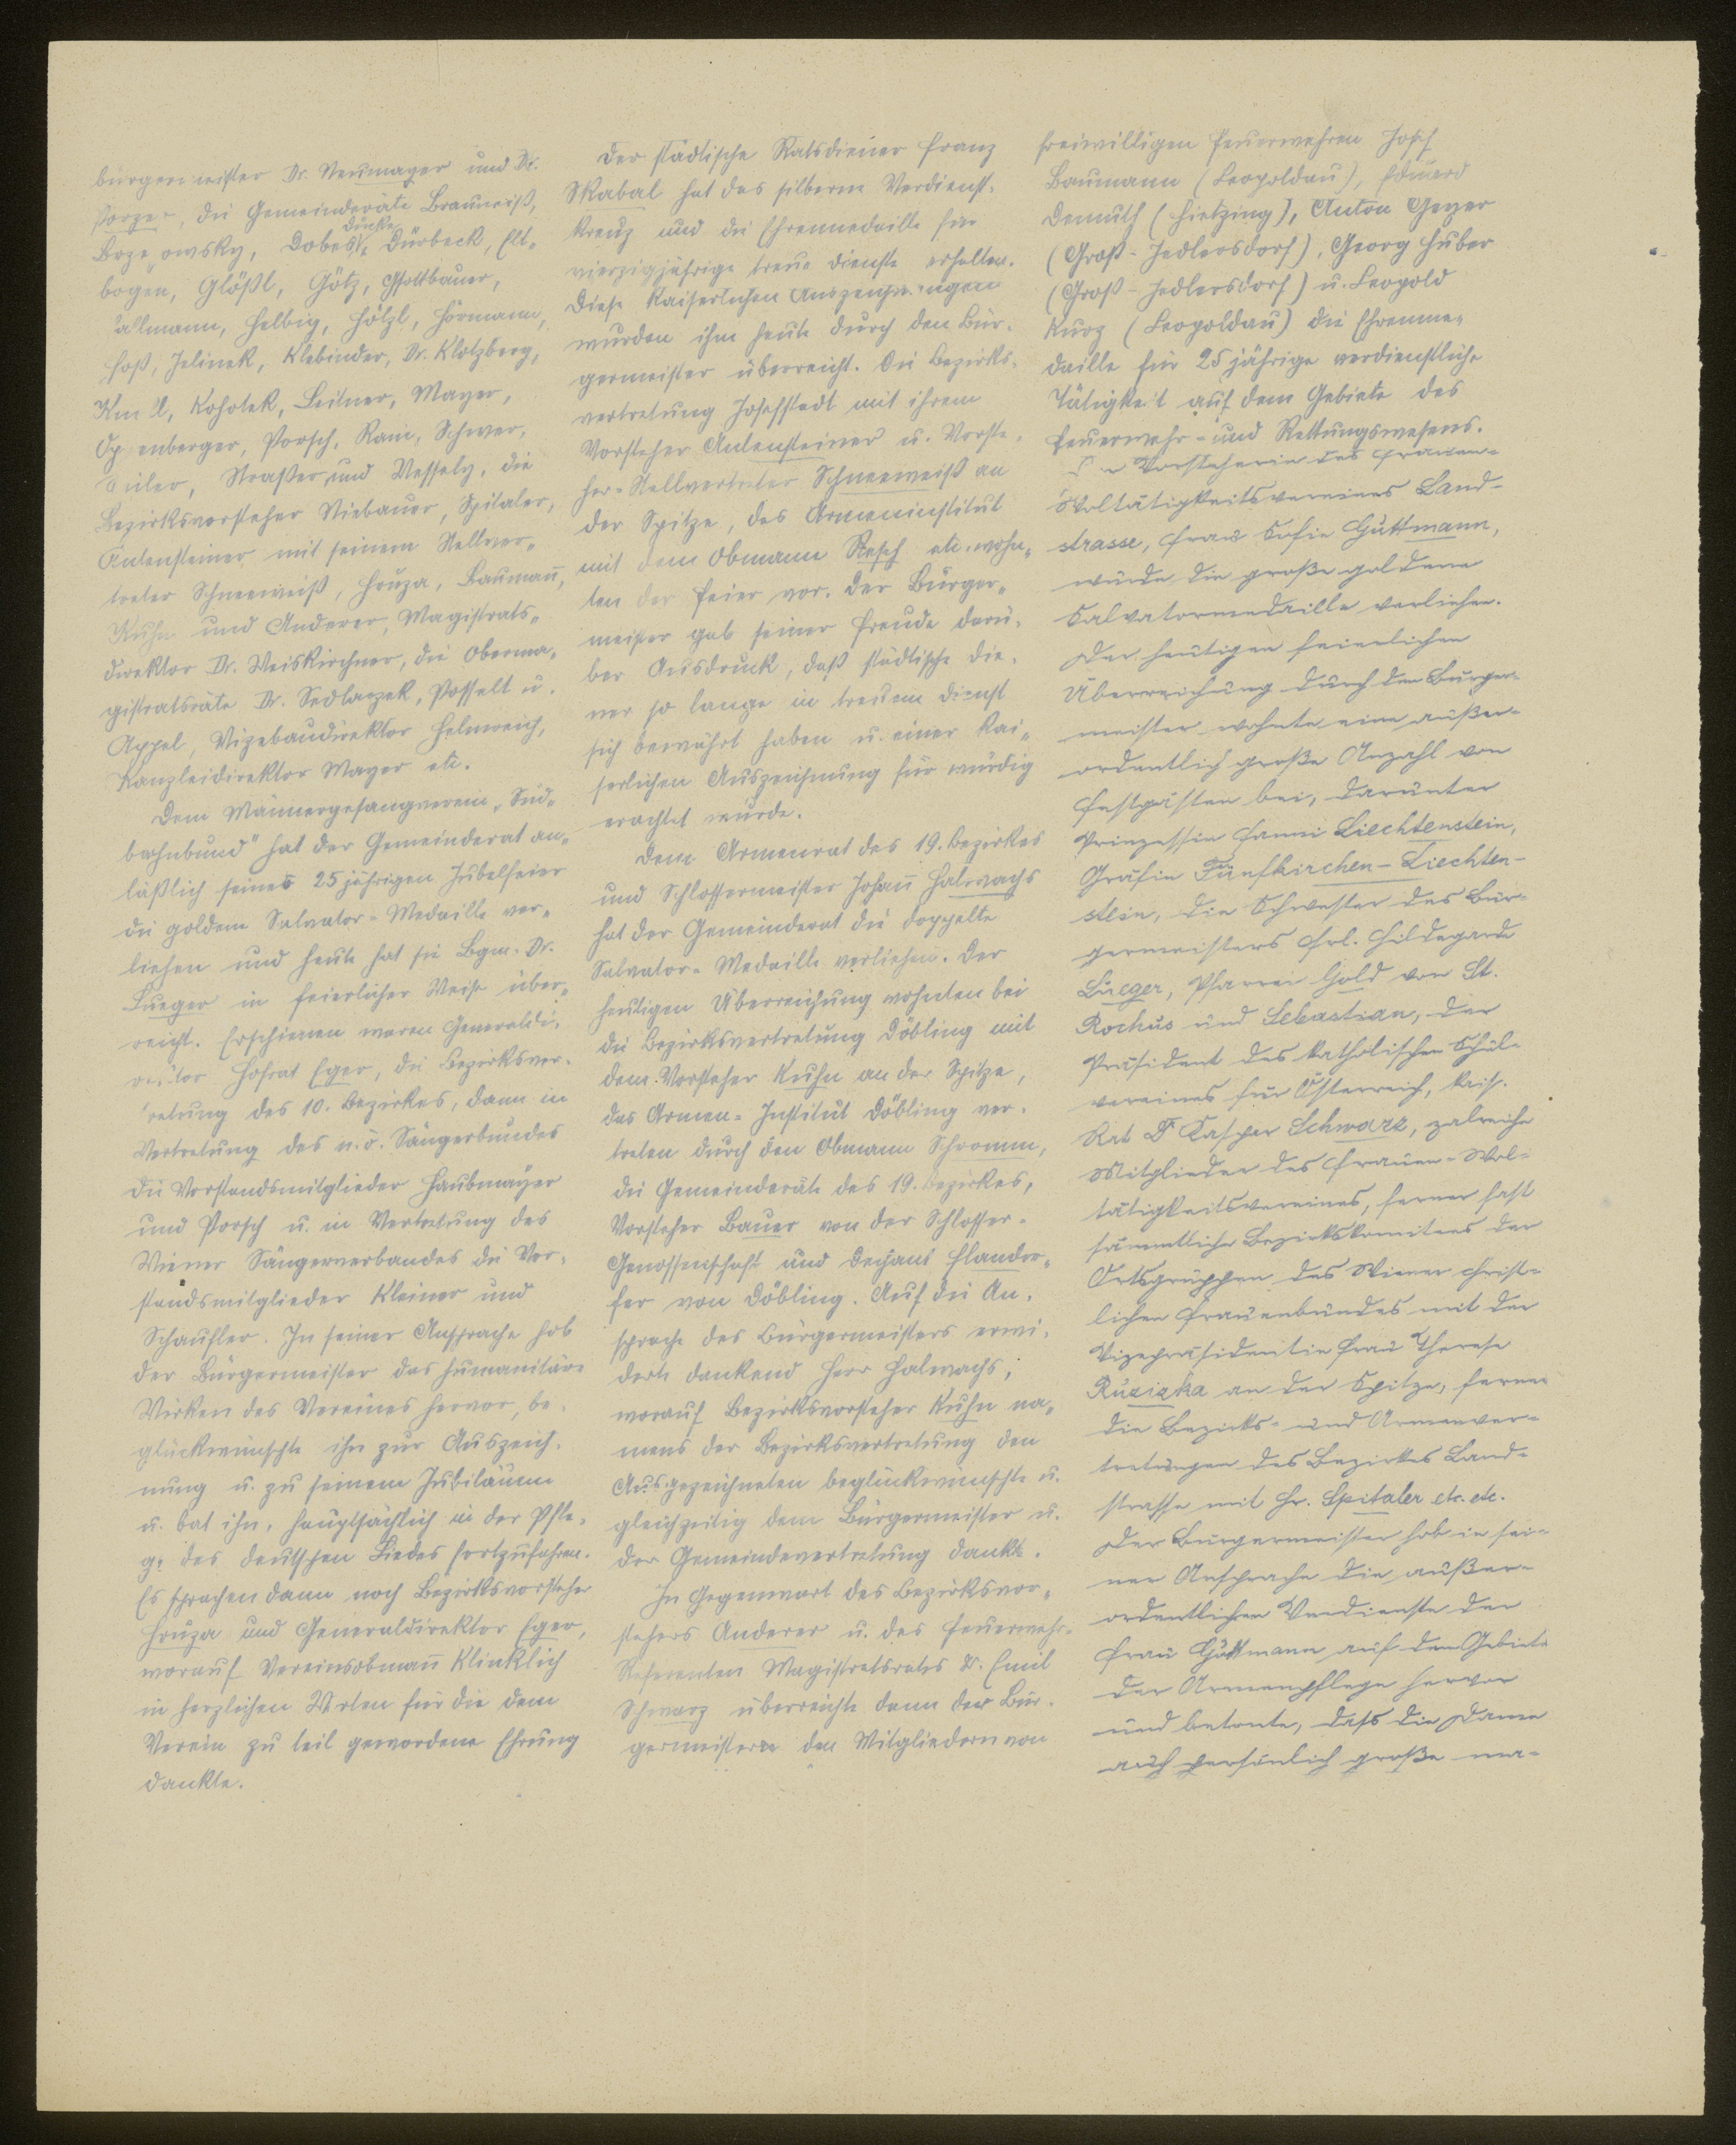 bürgermeister Dr. Neumayer und Dr.
Porzer, die Gemeinderäte Brauneiß,
Dücke
owsky, Dobes, Dürbeck, Elt-
bogen, Glößl, Götz, Gsottbauer,
allmann, Helbig, Hölzl, Hörmann,
Hoß, Jelinek, Klebinder, Dr. Klotzberg,
Kohotek, Leitner, Mayer,
enberger, Poersch, Rain, Schwer,
Straßer und Wessely, die
Bezirksvorsteher Niebauer, Spitaler,
Antensteiner mit seinem Stellver-
treter Schneeweiß, Hruza, Baumañ,
Kuhn und Anderer, Magistrats-
direktor Dr. Weiskirchner, die Oberma-
gistratsräte Dr. Sedlaczek, Posselt u.
Appel, Vizebaudirektor Helmreich,
Kanzleidirektor Mayer etc.
Dem Männergesangverein „Süd-
bahnbund" hat der Gemeinderat an-
läßlich seines 25 jährigen Jubelfeier
die goldene Salvator-Medaille ver-
liehen und heute hat sie Bgm. Dr.
Lueger in feierlicher Weise über-
reicht. Erschienen waren Generaldi-
rektor Hofrat Eger, die Bezirksver-
tretung des 10. Bezirkes, dann in
Vertretung des n.ö. Sängerbundes
die Vorstandsmitglieder Haubmayer
und Poersch u. in Vertretung des
Wiener Sängerverbandes die Vor-
standsmitglieder Kleiner und
Schaufler. In seiner Ansprache hob
der Bürgermeister das humanitäre
Wirken des Vereines hervor, be-
glückwünschte ihn zur Auszeich-
nung u. zu seinem Jubiläum
u. bat ihn, hauptsächlich in der Pfle-
ge des deutschen Liedes fortzufahren.
Es sprachen dann noch Bezirksvorsteher
Hruza und Generaldirektor Eger,
worauf Vereinsobmañ Klinklich
in herzlichen Worten für die dem
Verein zu teil gewordene Ehrung
dankte.
Der städtische Ratsdiener Franz
Skabal hat das silberne Verdienst-
kreuz und die Ehrenmedaille für
vierzigjährige treue Dienste erhalten.
Diese kaiserlichen Auszeichnungen
wurden ihm heute durch den Bür-
germeister überreicht. Die Bezirks-
vertretung Josefstadt mit ihrem
Vorsteher Antensteiner u. Vorste-
her-Stellvertreter Schneeweiß an
der Spitze, das Armeninstitut
mit dem Obmann Resch etc. wohn-
ten der Feier vor. Der Bürger-
meister gab seiner Freude darü-
ber Ausdruck, daß städtische Die-
ner so lange in treuem Dienst
sich bewährt haben u. einer kai-
serlichen Auszeichnung für würdig
erachtet wurde.
Dem Armenrat des 19. Bezirkes
und Schlossermeister Johañ Halwachs
hat der Gemeinderat die doppelte
Salvator-Medaille verliehen. Der
heutigen Überreichung wohnten bei
die Bezirksvertretung Döbling mit
dem Vorsteher Kuhn an der Spitze,
das Armen-Institut Döbling ver-
treten durch den Obmann Schramm,
die Gemeinderäte des 19. Bezirkes,
Vorsteher Bauer von der Schlosser-
Genossenschaft und Dechant Flandor-
fer von Döbling. Auf die An-
sprache des Bürgermeisters erwi-
derte dankend Herr Halwachs,
worauf Bezirksvorsteher Kuhn na-
mens der Bezirksvertretung den
Ausgezeichneten beglückwünschte u.
gleichzeitig dem Bürgermeister u.
der Gemeindevertretung dankte.
In Gegenwart des Bezirksvor-
stehers Anderer u. des Feuerwehr-
Referenten Magistratsrates Dr. Emil
Schwarz überreichte dann der Bür-
germeister den Mitgliedern von
freiwilligen Feuerwehren Josef
Baumann (Leopoldau), Eduard
Demuth (Hietzing), Anton Geyer
(Groß-Jedlersdorf), Georg Huber
(Groß-Jedlersdorf) u. Leopold
Kurz (Leopoldau) die Ehrenme-
daille für 25 jährige verdienstliche
Tätigkeit auf dem Gebiete des
Feuerwehr- und Rettungswesens.
Der Vorsteherin des Frauen-
Woltätigkeitsvereines Land-
strasse, Frau Sofie Guttmann,
wurde die große goldene
Salvatormedaille verliehen.
Der heutigen feierlichen
Überreichung durch den Bürger-
meister wohnte eine außer-
ordentlich große Anzahl von
Festgästen bei, darunter
Prinzessin Fanni Liechtenstein,
Gräfin Fünfkirchen-Liechten-
stein, die Schwester des Bür-
germeisters Frl. Hildegarde
Lueger, Pfarrer Gold von St.
Rochus und Sebastian, der
Präsident des katholischen Schul-
vereines für Österreich, kais.
Rat Dr Kaspar Schwarz, zalreiche
Mitglieder des Frauen-Wol-
tätigkeitsvereines, ferner fast
sämmtliche Bezirkskomitees der
Ortsgruppen des Wiener christ-
lichen Frauenbundes mit der
Vizepräsidentin Frau Therese
Ruzizka an der Spitze, ferner
die Bezirks- und Armenver-
tretungen des Bezirkes Land-
strasse mit Hr. Spitaler etc. etc.
Der Bürgermeister hob in sei-
ner Ansprache die außer-
ordentlichen Verdienste der
Frau Guttmann auf dem Gebiete
der Armenpflege hervor
und betonte, dass die Dame
auch persönlich große ma-